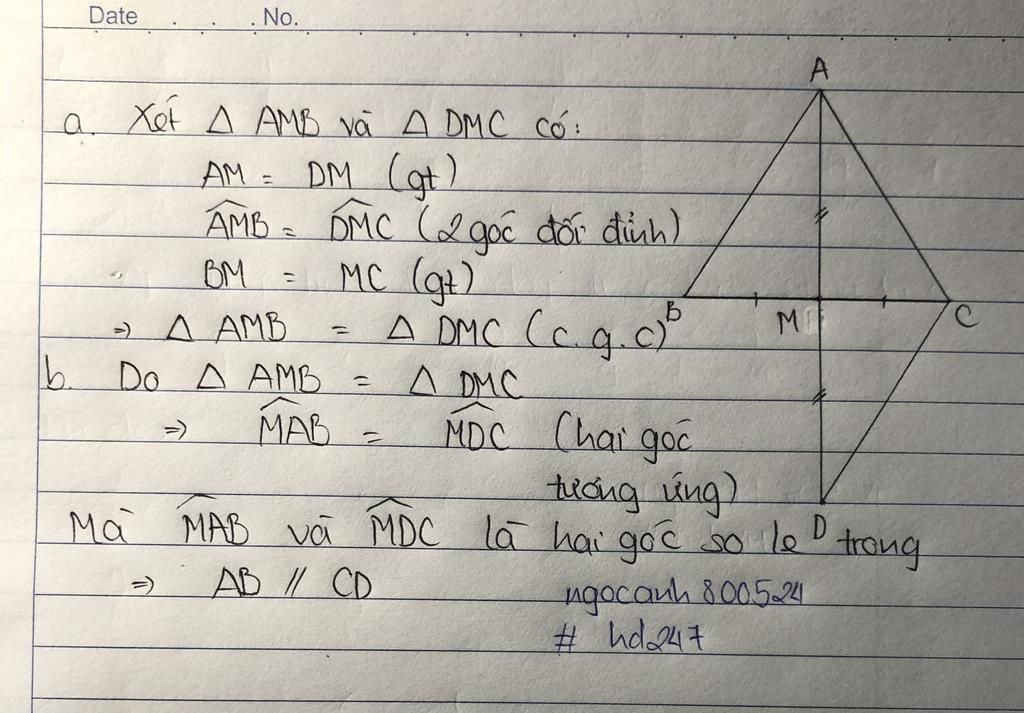 Date . . . No.
A
a. Xét Δ AMB và Δ DMC có:
AM = DM (gt)
\widehat{AMB} = \widehat{DMC} (2 góc đối đỉnh)
BM = MC (gt)
B
M
C
⇒ Δ AMB = Δ DMC (c.g.c)
b. Do Δ AMB = Δ DMC
⇒ \widehat{MAB} = \widehat{MDC} (hai góc
tương ứng)
D
Mà \widehat{MAB} và \widehat{MDC} là hai góc so le trong
⇒ AB // CD
ngocanh800524
# hd247